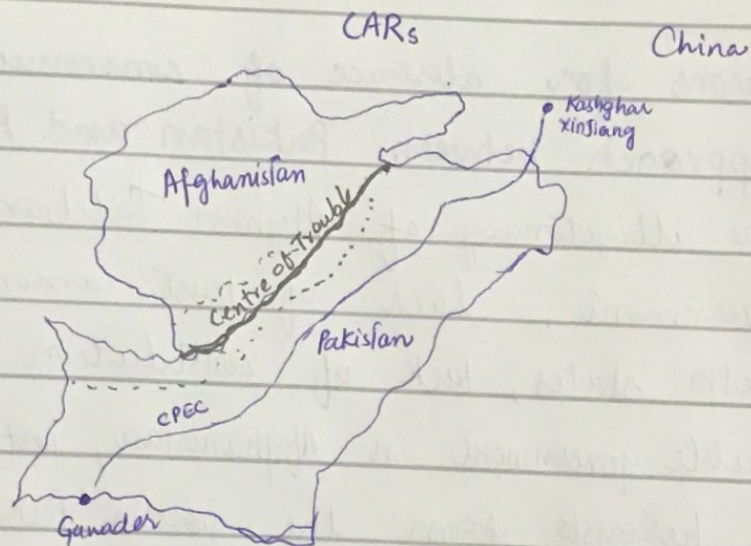 CARs
China
Kashghar
XinJiang
Afghanistan
Centre-of-Trouble
Pakistan
CPEC
Gwader